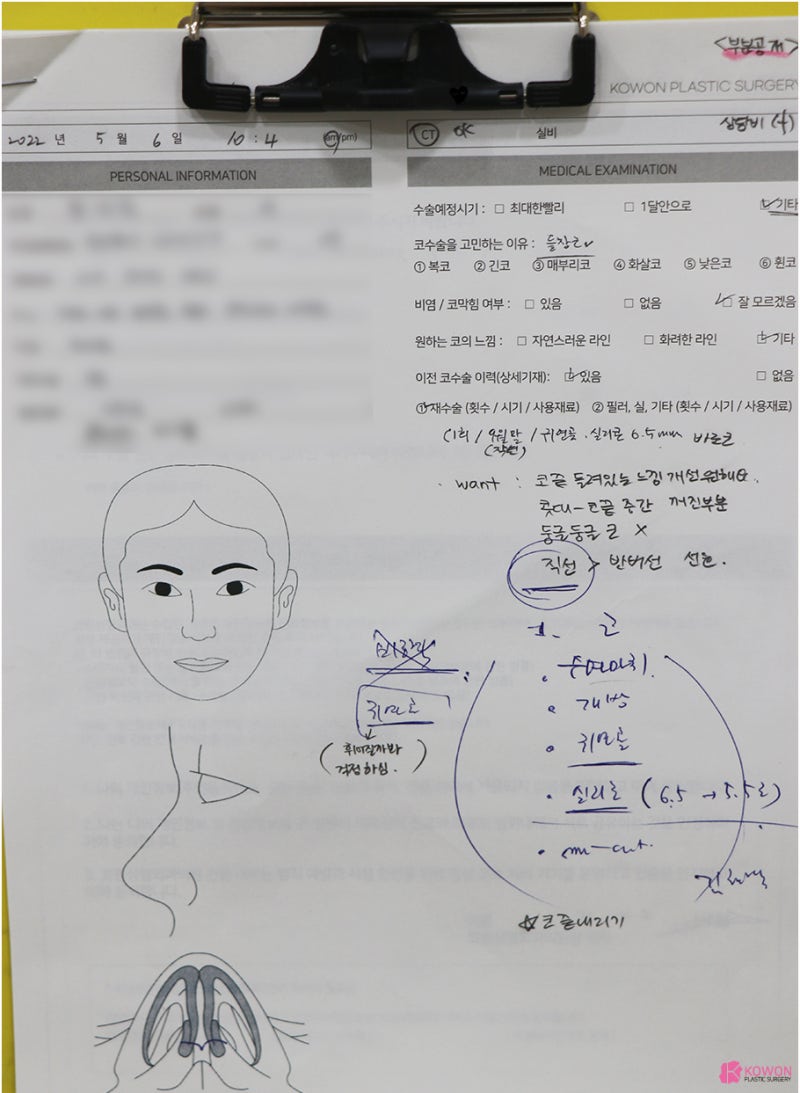 <부분공개>
KOWON PLASTIC SURGERY
2022 년 5 월 6 일 10 : 4 (am/pm)
CT OK 실비 상담비 (4)
PERSONAL INFORMATION
MEDICAL EXAMINATION
수술예정시기 : □ 최대한빨리 □ 1달안으로 □ 기타
코수술을 고민하는 이유 : 들창코
① 복코 ② 긴코 ③ 매부리코 ④ 화살코 ⑤ 낮은코 ⑥ 휜코
비염 / 코막힘 여부 : □ 있음 □ 없음 □ 잘 모르겠음
원하는 코의 느낌 : □ 자연스러운 라인 □ 화려한 라인 □ 기타
이전 코수술 이력(상세기재): □ 있음 □ 없음
① 재수술 (횟수 / 시기 / 사용재료) ② 필러, 실, 기타 (횟수 / 시기 / 사용재료)
(1회 / 9월말 / 귀연골. 실리콘 6.5mm 바른코
(작년)
· want : 코끝 들려있는 느낌 개선 원해요.
콧대-코끝 중간 꺼진부분
둥글둥글 코 X
직선 > 반버선 선호.
1. 코
· 수면마취.
· 개방
귀연골 · 귀연골
· 실리콘 (6.5 → 5.5로)
· mi-cut.
☆코끝내리기
KOWON
PLASTIC SURGERY